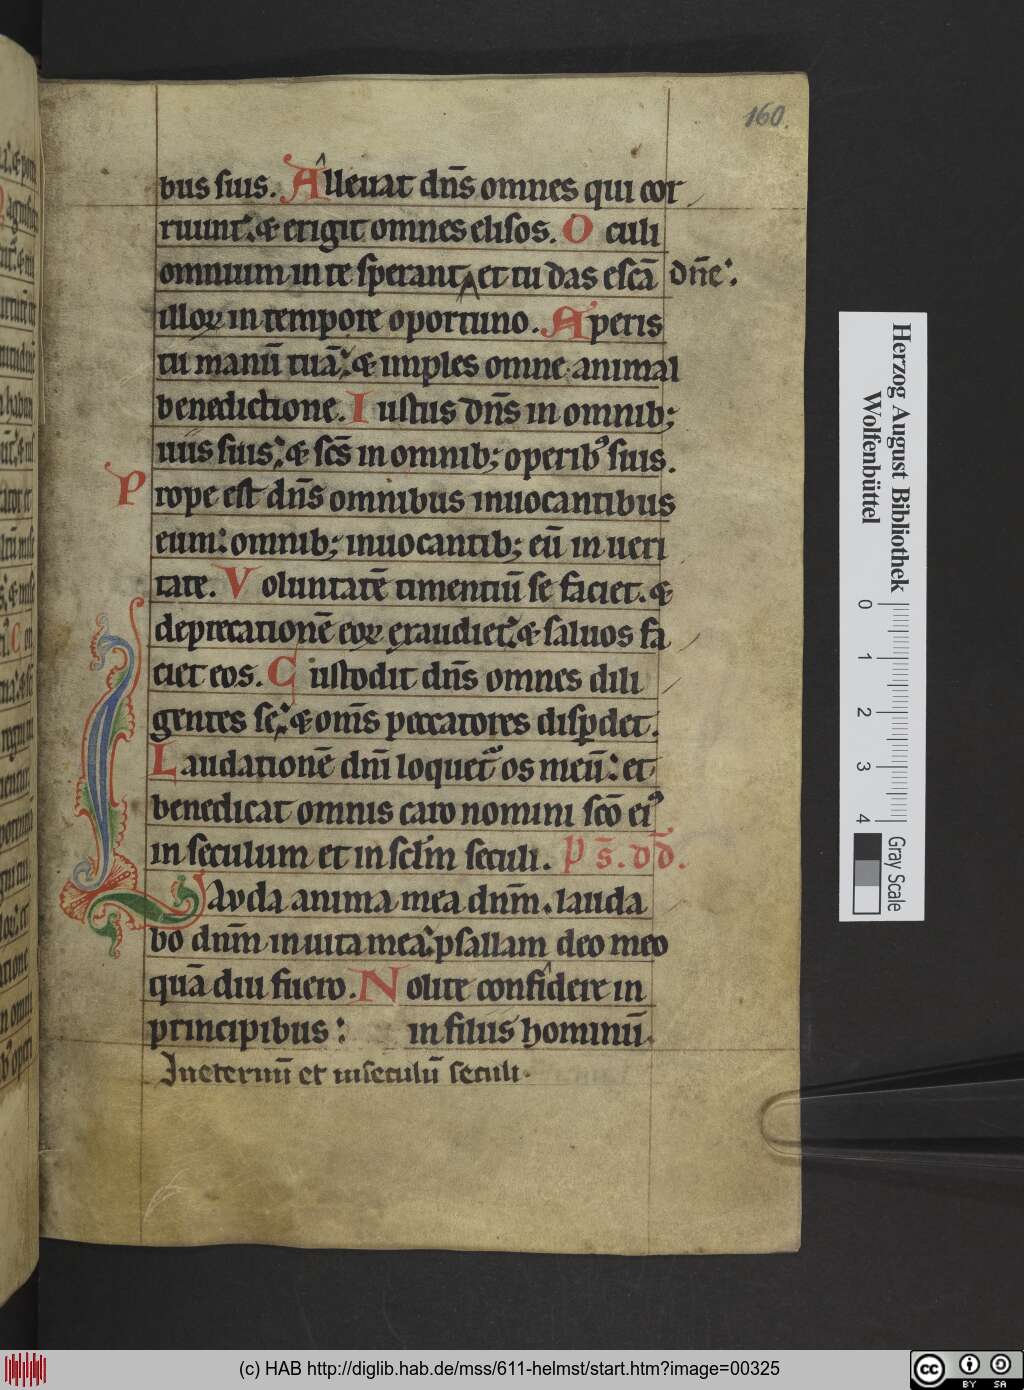 160.
bus suis. Alleuat dn̄s omnes qui cor
ruunt: & erigit omnes elisos. Oculi
omnium in te sperant et tu das escā dn̄e:
illoꝝ in tempore oportuno. Aperis
tu manū tuā: & imples omne animal
benedictione. Iustus dn̄s in omnib;
uiis suis: & sc̄s in omnib; operibꝰ suis.
Prope est dn̄s omnibus inuocantibus
eum: omnib; inuocantib; eū in ueri
tate. Voluntatē timentiū se faciet. &
deprecationē eoꝝ exaudiet: & saluos fa
ciet eos. Custodit dn̄s omnes dili
gentes se: & om̄s peccatores disꝑdet.
Laudationē dn̄i loquetᷣ os meū: et
benedicat omnis caro nomini sc̄o eiꝰ
in seculum et in sclm̄ seculi. Ps̄. dd̄.
Lauda anima mea dnm̄. lauda
bo dnm̄ in uita mea: psallam deo meo
quā diu fuero. Nolite confidere in
principibus: in filiis hominū.
In eternū et in seculū seculi.
Herzog August Bibliothek
Wolfenbüttel
0 1 2 3 4
Gray Scale
(c) HAB http://diglib.hab.de/mss/611-helmst/start.htm?image=00325
cc BY SA